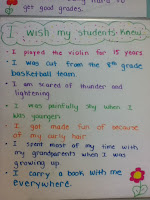 get good grades.
I wish my students knew
• I played the violin for 15 years
• I was cut from the 8th grade
basketball team
• I am scared of thunder and
lightening
• I was painfully shy when I
was younger
• I got made fun of because
of my curly hair
• I spent most of my time
with my grandparents when I was
growing up
• I carry a book with me
everywhere.